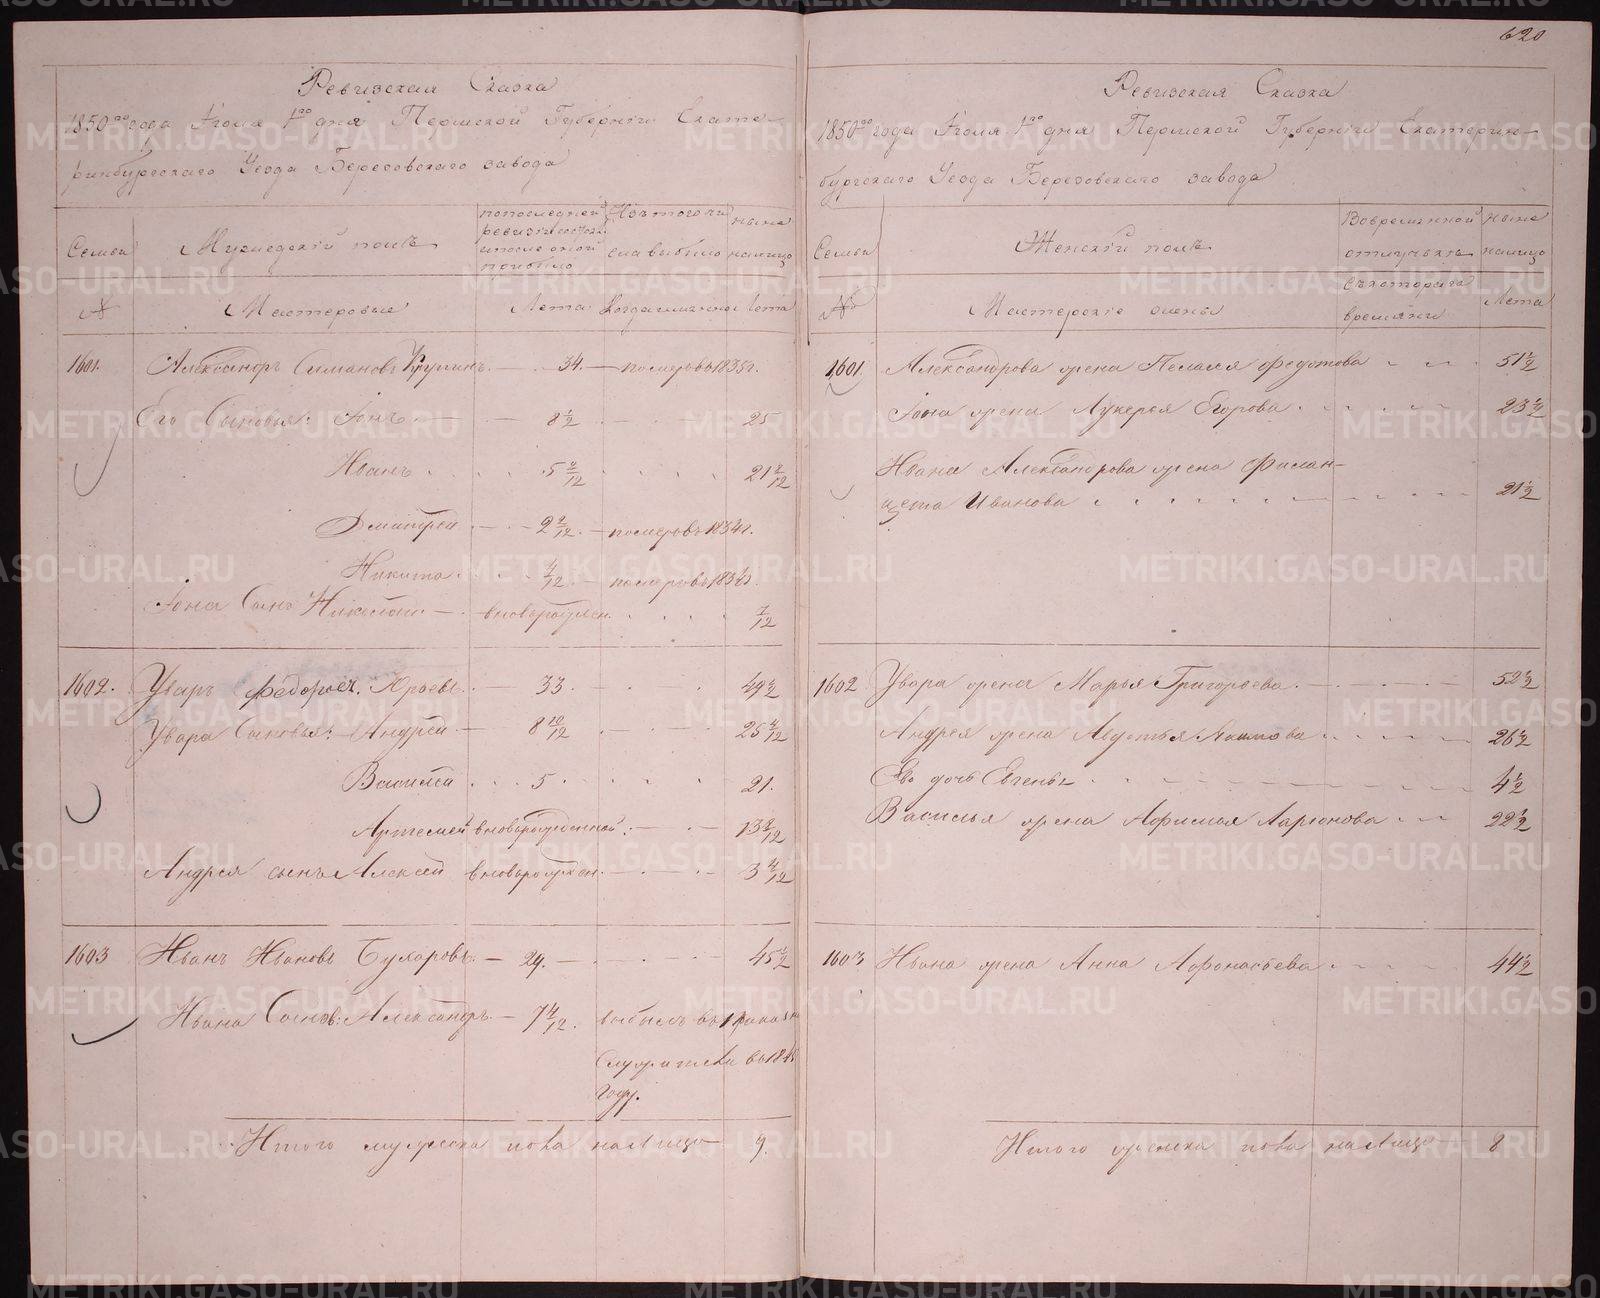 620
Ревизская Сказка
1850го года Iюля 1го дня Пермской Губернiи Екате-
ринбургскаго Уезда Березовскаго завода
Семьи
Мужеский полъ
по последней ревизiи состояло и после оной прибыло
Изъ того числа выбыло
ныне налицо
№
Мастеровые
Лета
Когда именно
Лета
1601. Александръ Симановъ 34. померъ въ 1835 г.
Его Сыновья: Iонъ 8 1/2 25
Иванъ 5 2/12 21 8/12
Дмитрей 2 2/12 померъ въ 1834 г.
Никита 4/12 померъ въ 1834 г.
Iона Сынъ Николай вноворожден. 7/12
1602. Уваръ Федоровъ Юрьевъ 33 49 1/2
Увара Сыновья: Андрей 8 10/12 25 4/12
Василей 5 21.
Артемей вноворожденной: 13 8/12
Андрея сынъ Алексей вноворожден. 3 4/12
1603 Иванъ Ивановъ Бухаровъ 29. 45 1/2
Ивана Сынов: Александръ 7 4/12. выбылъ въ
Служители въ 18
году.
Итого мужеска пола налицо 9.
Ревизская Сказка
1850го года Iюля 1го дня Пермской Губернiи Екатерин-
бургскаго Уезда Березовскаго завода
Семьи
Женскiй полъ
Во временной отлучкѣ
ныне налицо
№
Мастерскiе жены
Съ котораго времяни
Лета
1601. Александрова жена Пелагея Федотова 51 1/2
Iона жена Лукерья Егорова 23 1/2
Ивана Александрова жена Филан-
цета Иванова 21 1/2
1602 Увара жена Марья Григорьева 52 1/2
Андрея жена Авдотья 26 1/2
Ево дочь Евгенья 4 1/2
Василья жена Афимья Ларионова 22 1/2
1603 Ивана жена Анна Афонасьева 44 1/2
Итого женска пола налицо 8
METRIKI.GASO-URAL.RU